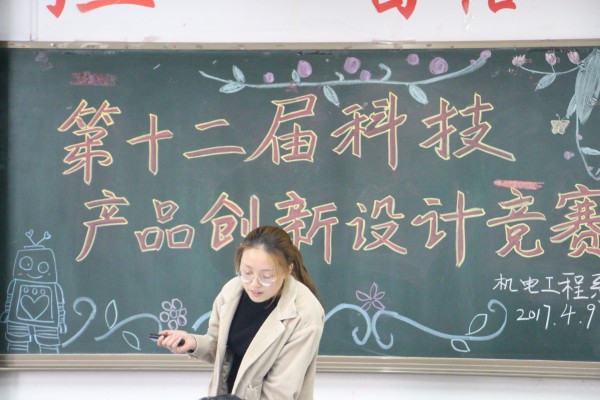 第十二届科技
产品创新设计竞赛
机电工程系
2017.4.9